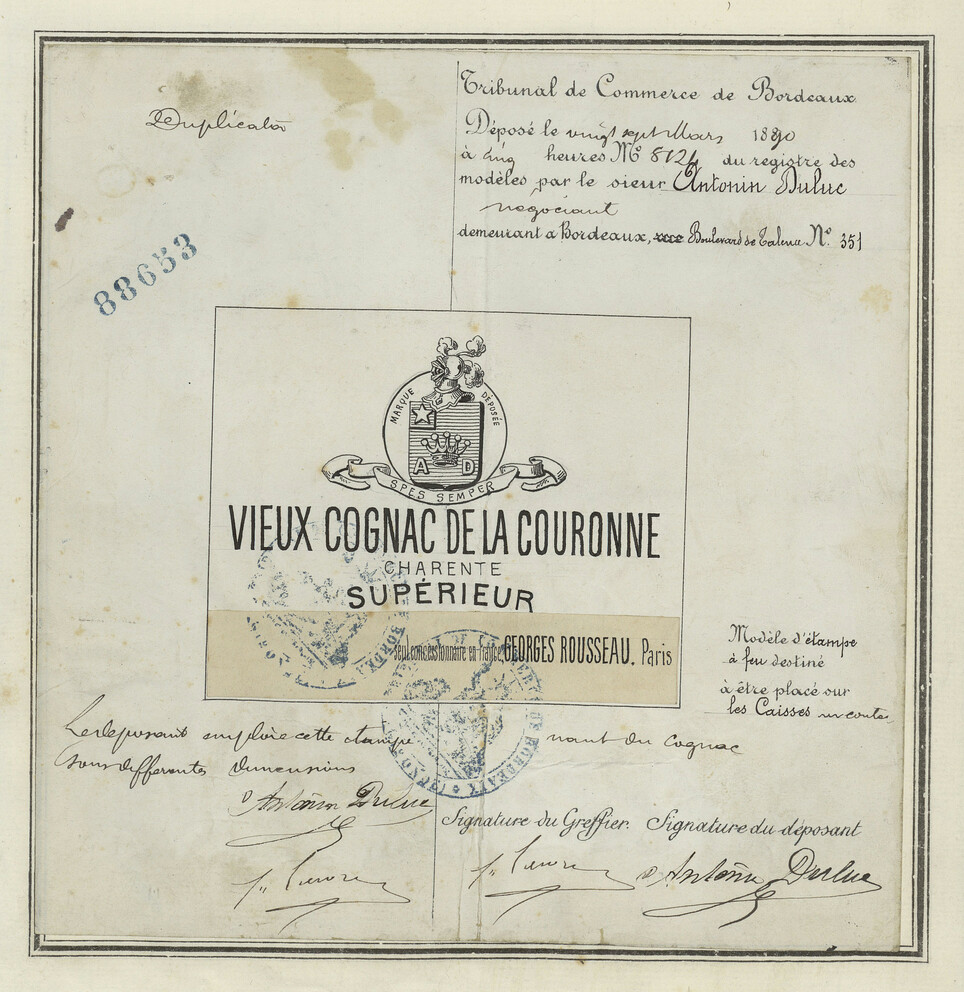 Duplicata
Tribunal de Commerce de Bordeaux
Déposé le vingt sept Mars 1890
à cinq heures Nº 8124 du registre des
modèles par le sieur Antonin Duluc
negociant
demeurant a Bordeaux, Boulevard de Talence Nº 351
88653
MARQUE DÉPOSÉE
A D
SPES SEMPER
VIEUX COGNAC DE LA COURONNE
CHARENTE
SUPÉRIEUR
seul concessionnaire en France, GEORGES ROUSSEAU. Paris
Modèle d'étampe
à feu destiné
à être placé sur
les Caisses conte
nant du Cognac
Le deposant emploie cette etampe
sous differentes dimensions
Antonin Duluc
Signature du Greffier. Signature du déposant
Antonin Duluc